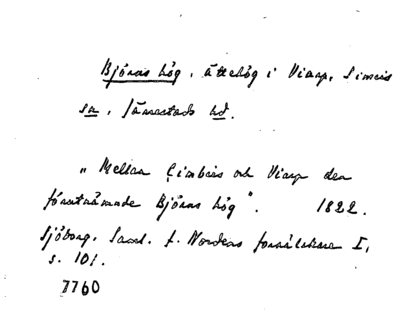 Björns hög, ättehög i Viarp, Simris
sn, Järrestads hd.
"Mellan Cimbris och Viarp den
förutnämnde Björns hög". 1822.
Sjöborg, Saml. f. Nordens fornälskare I,
s. 101.
7760